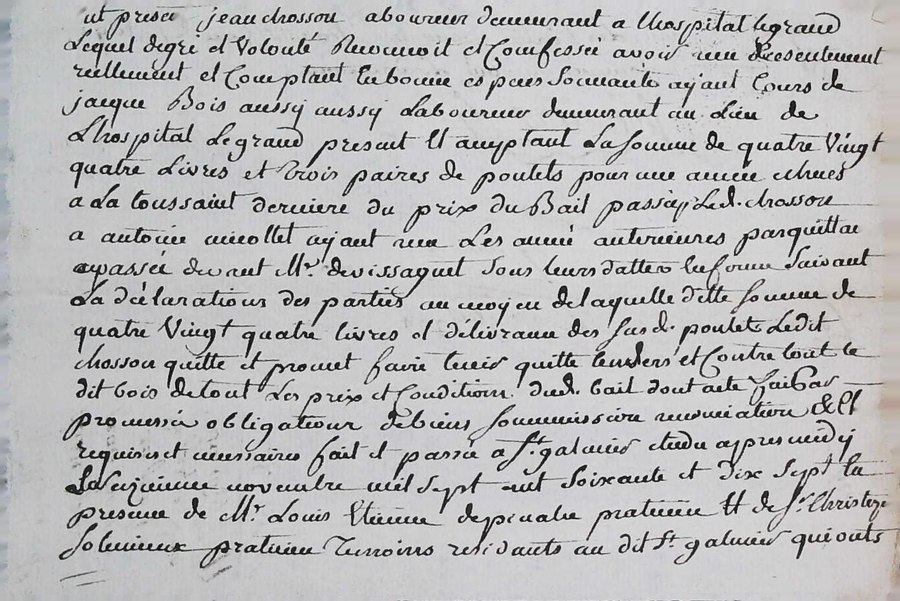 ut presen jean chosson aboureur demeurant a lhospital legrand
Lequel degré et volonté Reconnoit et Confesse avoir reçu presentement
reellement et Comptant En bonne especes sonnante ayant Cours de
jacque Bois aussy aussy Laboureur demeurant au Lieu de
Lhospital Legrand present Et acceptant La somme de quatre Vingt
quatre Livres et trois paires de poulets pour une année echues
a La toussaint derniere du prix du Bail passé Led. chosson
a antoine nicollet ayant reçu Les année anterieures par quittance
passée devant Mr. devissaguet sous leurs dattes En forme suivant
La déclaration des parties au moyen de laquelle dette somme de
quatre Vingt quatre livres et délivrance des susd. poulets Ledit
chosson quitte et promet faire tenir quitte Envers et Contre tout le
dit bois de tout Les prix et Conditions dud. bail dont acte faits par
promesse obligation de biens soummission renonciation &
requises et necessaires fait et passé a St. galmier etude apres midy
Le seizieme novembre mil sept cent soixante et dix sept En
presence de Mr. Louis Etienne depinabre praticien Et de Sr. Christophe
Solmieux praticien Temoins residants au dit St. galmier qui onts